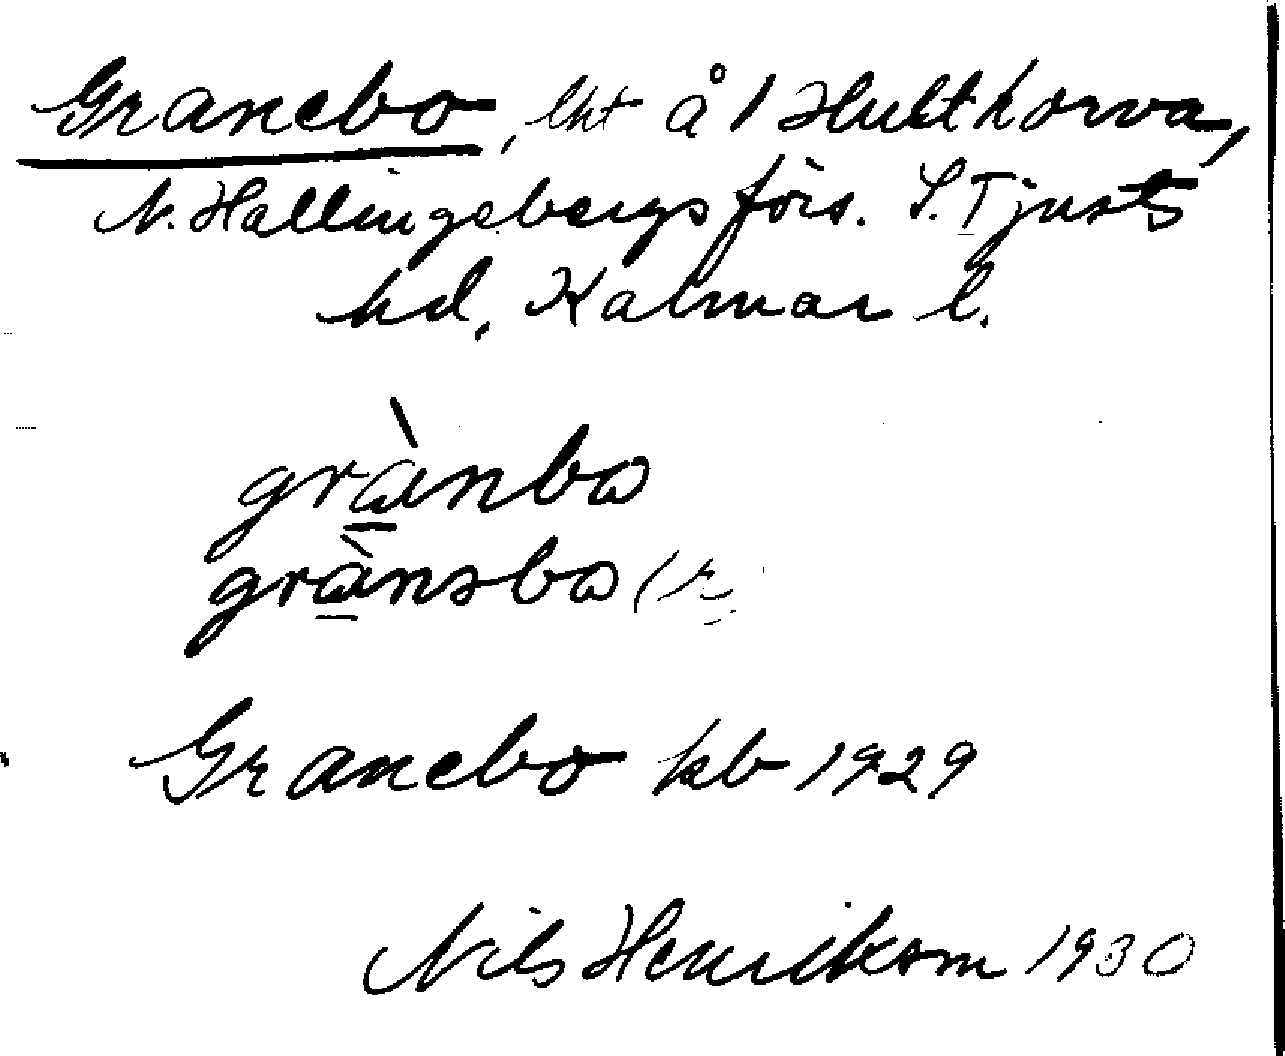 Granebo, lht å 1 Hultkorva,
N. Hallingebergs förs. S. Tjusts
hd, Kalmar l.
grànbo
grànsbo (r
Granebo kb 1929
Nils Henrikson 1930